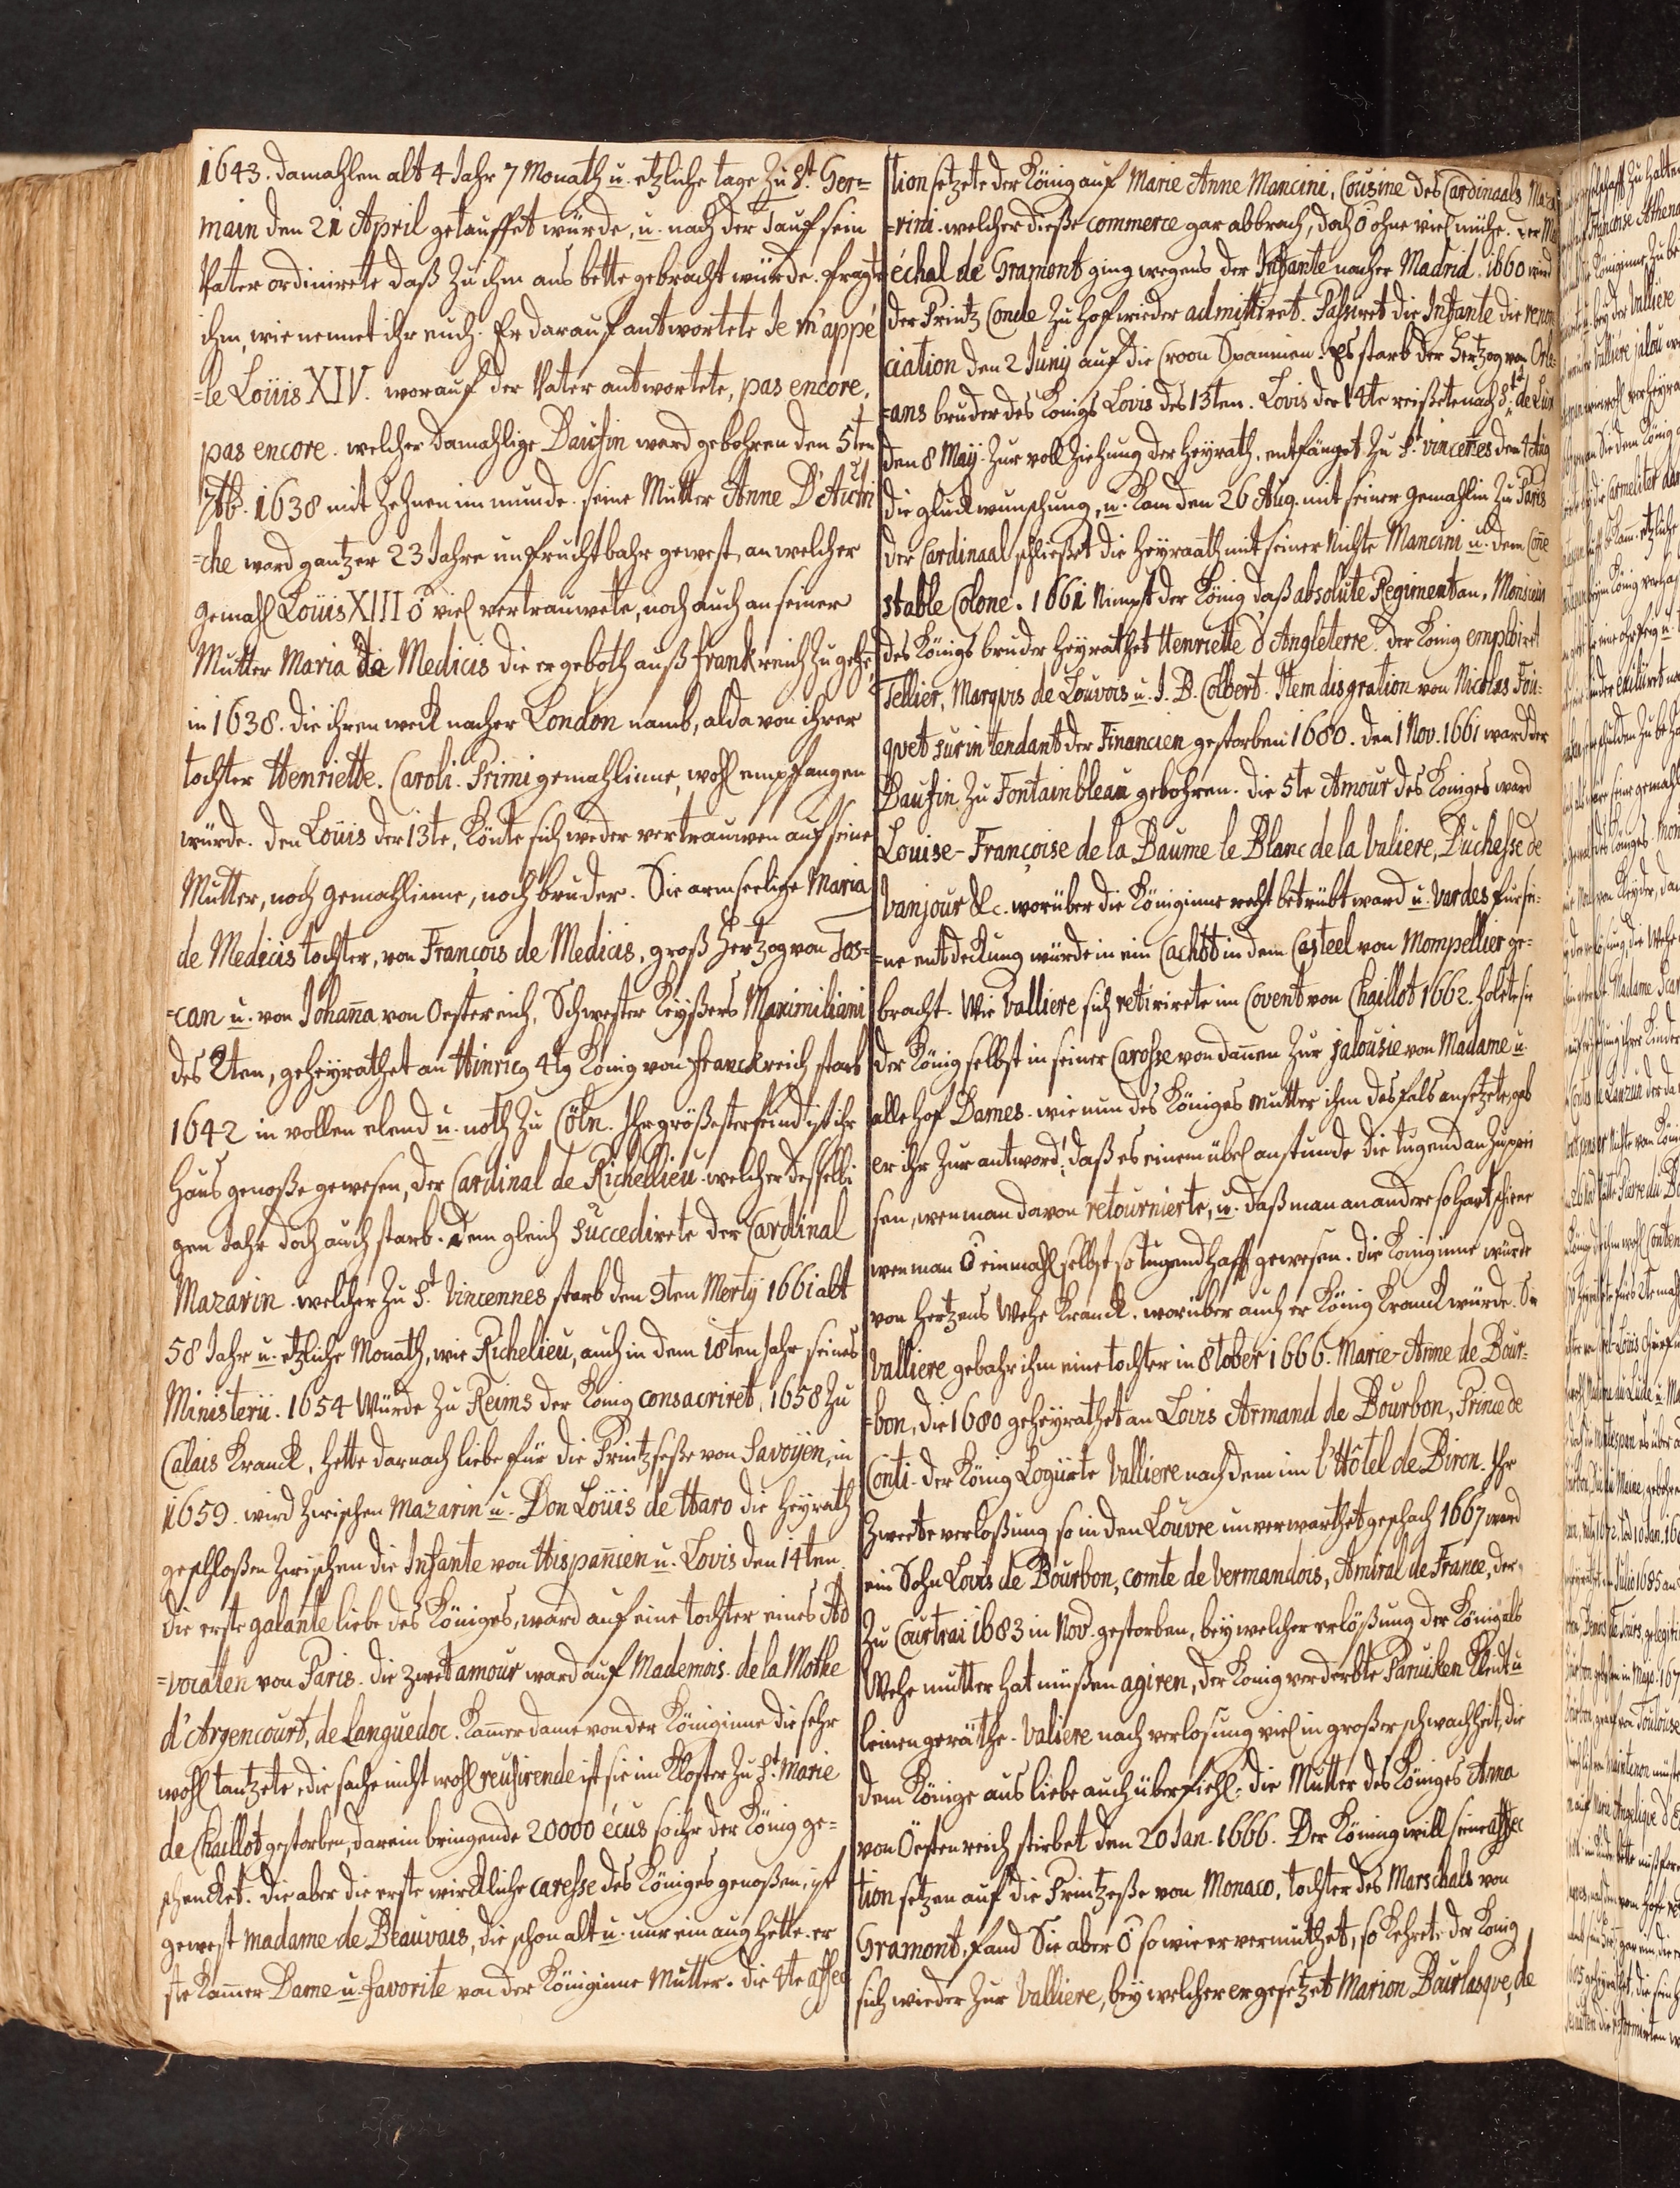 1643. damahlen alt 4 Jahr 7 Monath u. etzliche tage zu St. Ger=
main den 21 April getauffet würde, u. nach der Tauf sein
Vater ordinirete daß zu ihm ans bette gebracht würde. fragte
ihm, wie nennet ihr euch. Er darauf antwortete Je m'appé
=le Loüis XIV. worauf der Vater antwortete, pas encore,
pas encore. welcher damahlige Daufin ward gebohren den 5ten
7tb. 1638 mit Zehnen im munde. seine Mutter Anne D'Autri
=che ward gantzer 23 Jahre unfruchtbahr gewest, an welcher
gemahl Loüis XIII ō viel vertrauwete, noch auch an seiner
Mutter Maria de Medicis die er geboth auß franckreich zu gehē
in 1638. die ihren weck nacher London namb, alda von ihrer
tochter Henriette. Caroli. Primi gemahlinne, wohl empfangen
würde. den Loüis der 13te, Könte sich weder vertrauwen auf seine
Mutter, noch gemahlinne, noch bruder. Sie armseelige Maria
de Medicis tochter, von François de Medicis, groß Hertzog von Tos=
=can u. von Johan̄a von Oestereich, Schwester Keyßers Maximiliani
des 2ten, geheyrathet an Hinricg 4tg König von Franckreich starb
1642 in vollen elend u. noth zu Cöln. Ihr größester feind ist ihr
Haus genoße gewesen, der Cardinal de Richellieu. welcher desselbi
gen Jahr doch auch starb. Dem gleich succedirete der Cardinal
Mazarin. welcher zu St. Vincennes starb den 9ten Merty 1661 alt
58 Jahr u. etzliche Monath, wie Richelieu, auch in dem 18ten Jahr seines
Ministerii. 1654 Würde zu Reims der König consacriret, 1658 zu
Calais Kranck, hette darnach liebe für die Printzseße von Savoÿen, in
1659. wird zwischen Mazarin u. Don Loüis de Haro die Heyrath
geschloßen zwischen die Infante von Hispan̄ien u. Lovis den 14ten.
die erste galante liebe des Königes, ward auf eine tochter eines Ad
=vocaten von Paris. die zwet amour ward auf Mademois. de la Mothe
d'Argencourt, de Languedoc. Kam̄er dame von der Königinne die sehr
wohl tantzete, die sache nicht wohl reusirende ist sie im Kloster zu St. Marie
de Chaillot gestorben, darein bringende 20000 écus so ihr der König ge=
schencket. die aber die erste wirckliche caresse des Königes genoßen, ist
gewest madame de Beauvais, die schon alt u. nur ein aug hette. er
ste Kam̄er Dame u. favorite von der Königinne Mutter. die 4te affec
tion setzete der König auf Marie Anne Mancini, Cousine des Cardinaals Maza
=rini. welcher dieße commerce gar abbrach, doch ō ohne viel mühe. Der Mar
échal de Gramont ging wegens der Infante nacher Madrid. 1660 wird
der Printz Conde zu Hof wieder admittiret. Passiret die Infante die renon
ciation den 2 Juny auf die Croon Spannien. Es starb der Hertzog von Orle
=ans bruder des Königs Lovis des 13ten. Lovis der 14te reißete nach St. de Lux
den 8 Maÿ. zur voll ziehung der Heyrath, entfänget zu St. vincen̄es den 4 Aug
die gluckwunschung, u. kam den 26 Aug. mit seiner gemahlin zu Paris
der Cardinaal schließet die Heyraath mit seiner Nichte Mancini u. dem Con̄e
stable Colone. 1661 Nimpt der König daß absolute Regiment an. Monsieur
des Königs bruder heyrathet Henriette d'Angleterre. der König emploiret
Tellier, Marquis de Louvois u. J. B. Colbert. Item disgration von Nicolas Fou=
quet surintendant der Financien gestorben 1680. den 1 Nov. 1661 ward der
Daufin zu Fontainbleau gebohren. die 5te Amour des Königes ward
Louise-Françoise de la Baume le Blanc de la Valiere, Duchesse de
Vanjour &c. worüber die Königinne recht betrübt ward u. Vardes fur sei=
=ne entdeckung würde in ein Cachot in dem Casteel von Mompellier ge=
bracht. Wie Valliere sich retirirete im Covent von Chaillot 1662. holete sie
der König selbst in seiner Carosse von dan̄en zur jalousie von Madame u.
alle hof Dames. wie nun des Königes mutter ihm desfals ansetzete, gab
er ihr zur antword; daß es einem übel anstunde die tugend an zu prei
sen, wen man davon retournirte, u. daß man an andere so hart schiene
wen man ō einmahl selbst so tugendhafft gewesen. die Königinne würde
von Hertzens Wehe Kranck. worüber auch er König Kranck würde. Sie
Valliere gebahr ihm eine tochter in 8tober 1666. Marie-Anne de Bour=
=bon, die 1680 geheyrathet an Lovis Armand de Bourbon, Prince de
Conti. der König Logürte Valliere nach dem im l'Hôtel de Biron. Ihr
zweete verloßung so in den Louvre unverwarthet geschach 1667 ward
ein Sohn Lovis de Bourbon, comte de Vermandois, Amiral de France, der
zu Courtrai 1683 in Nov. gestorben, bey welcher verlößung der König als
Wehe mutter hat müßen agiren, der König verderbte Paruiken Kleidt u
leinen geräthe. Valiere nach verlosung viel in großer schwachheit, die
dem Könige aus liebe auch überfiehl. die Mutter des Königes Anna
von Öestenreich stirbet den 20 Jan. 1666. Der Köning will seine affec
tion setzen auf die Printzeße von Monaco, tochter des Marschals von
Gramont, fand Sie aber ō so wie er vermuthet, so Kehrete der König
sich wieder zur Valliere, bey welcher er gesetzet Marion Bourlasque, de